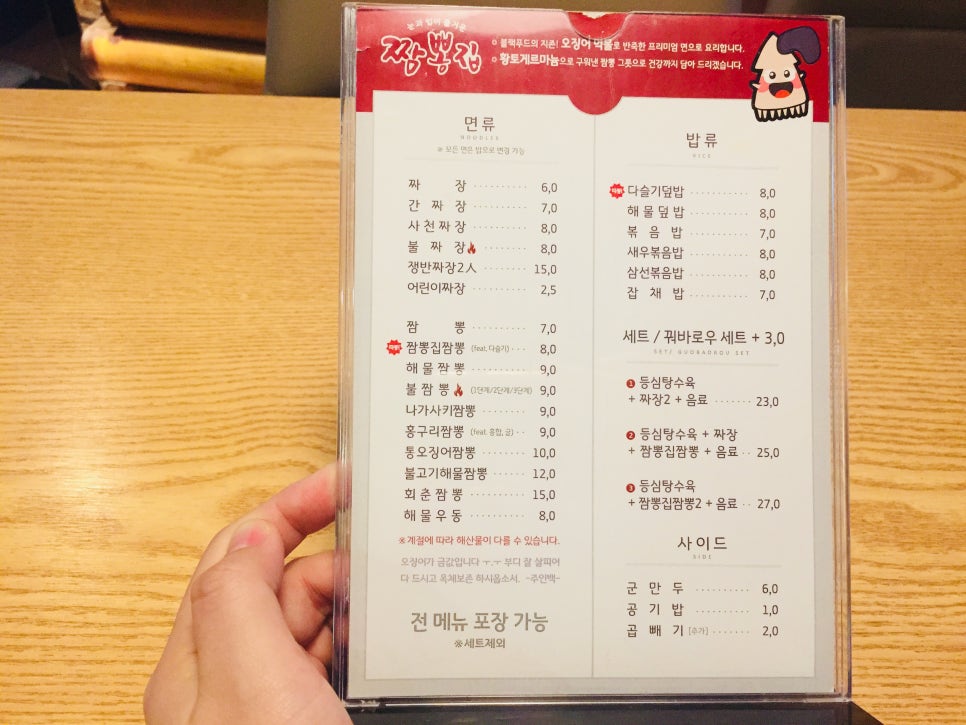 눈과 입이 즐거운
짬뽕집
블랙푸드의 지존! 오징어 먹물로 반죽한 프리미엄 면으로 요리합니다.
황토게르마늄으로 구워낸 짬뽕 그릇으로 건강까지 담아 드리겠습니다.
면류
NOODLES
※ 모든 면은 밥으로 변경 가능
짜장 ·········· 6,0
간짜장 ·········· 7,0
사천짜장 ·········· 8,0
불짜장 ·········· 8,0
쟁반짜장2人 ········ 15,0
어린이짜장 ········· 2,5
짬뽕 ·········· 7,0
짬뽕집짬뽕 (feat.다슬기) ··· 8,0
해물짬뽕 ·········· 9,0
불짬뽕 (1단계/2단계/3단계) 9,0
나가사키짬뽕 ········ 9,0
홍구리짬뽕 (feat. 홍합, 굴) ·· 9,0
통오징어짬뽕 ········ 10,0
불고기해물짬뽕 ······· 12,0
회춘짬뽕 ·········· 15,0
해물우동 ·········· 8,0
※계절에 따라 해산물이 다를 수 있습니다.
오징어가 금값입니다 ㅜ.ㅜ 부디 잘 살피어
다 드시고 옥체보존 하시옵소서. -주인백-
전 메뉴 포장 가능
※세트제외
밥류
RICE
다슬기덮밥 ·········· 8,0
해물덮밥 ·········· 8,0
볶음밥 ·········· 7,0
새우볶음밥 ·········· 8,0
삼선볶음밥 ·········· 8,0
잡채밥 ·········· 7,0
세트 / 꿔바로우 세트 + 3,0
SET/ GUOBAOROU SET
1 등심탕수육
+ 짜장2 + 음료 ······· 23,0
2 등심탕수육 + 짜장
+ 짬뽕집짬뽕 + 음료 ·· 25,0
3 등심탕수육
+ 짬뽕집짬뽕2 + 음료 ·· 27,0
사이드
SIDE
군만두 ·········· 6,0
공기밥 ·········· 1,0
곱빼기 [추가] ······· 2,0